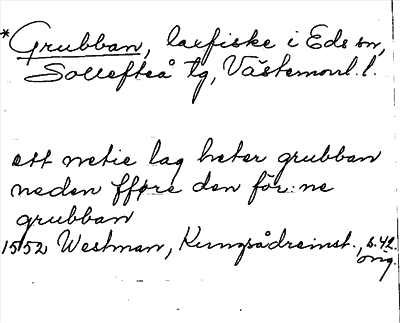 *Grubban, laxfiske i Eds sn,
Sollefteå tg, Västernorrl. l.
ett netie lag heter grubban
neden fføre den för:ne
grubban
1552 Westman, Kungsådreinst., s. 42.
orig.